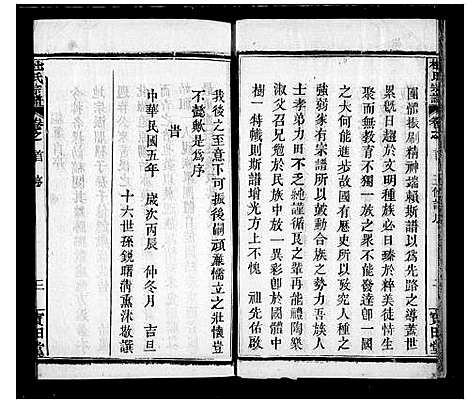 團體振刷精神端賴斯譜以爲先路之導蓋世
界既日趨於文明種族必日臻於粹美徒恃生
殖無教育不獨一族之衆不能發達卽一國之
大亦難言進步故國有歷史所以致究人種之
强弱家有宗譜所以鼓動合族之勢力吾族人
士孝弟力田不乏純謹循良之輩再能禮陶樂
淑父召兄勉於中族中放一異彩卽於國體中
樹一特幟則斯譜增光方上不愧　祖先佑啟
我後之至意下可振後嗣頑廉懦立之壯懷豈
不懿歟是爲序
旹
中華民國五年　歲次丙辰　仲冬月　吉旦
十六世孫鋭曙清薰沐敬譔
杜氏宗譜
卷之首
三
寶田堂